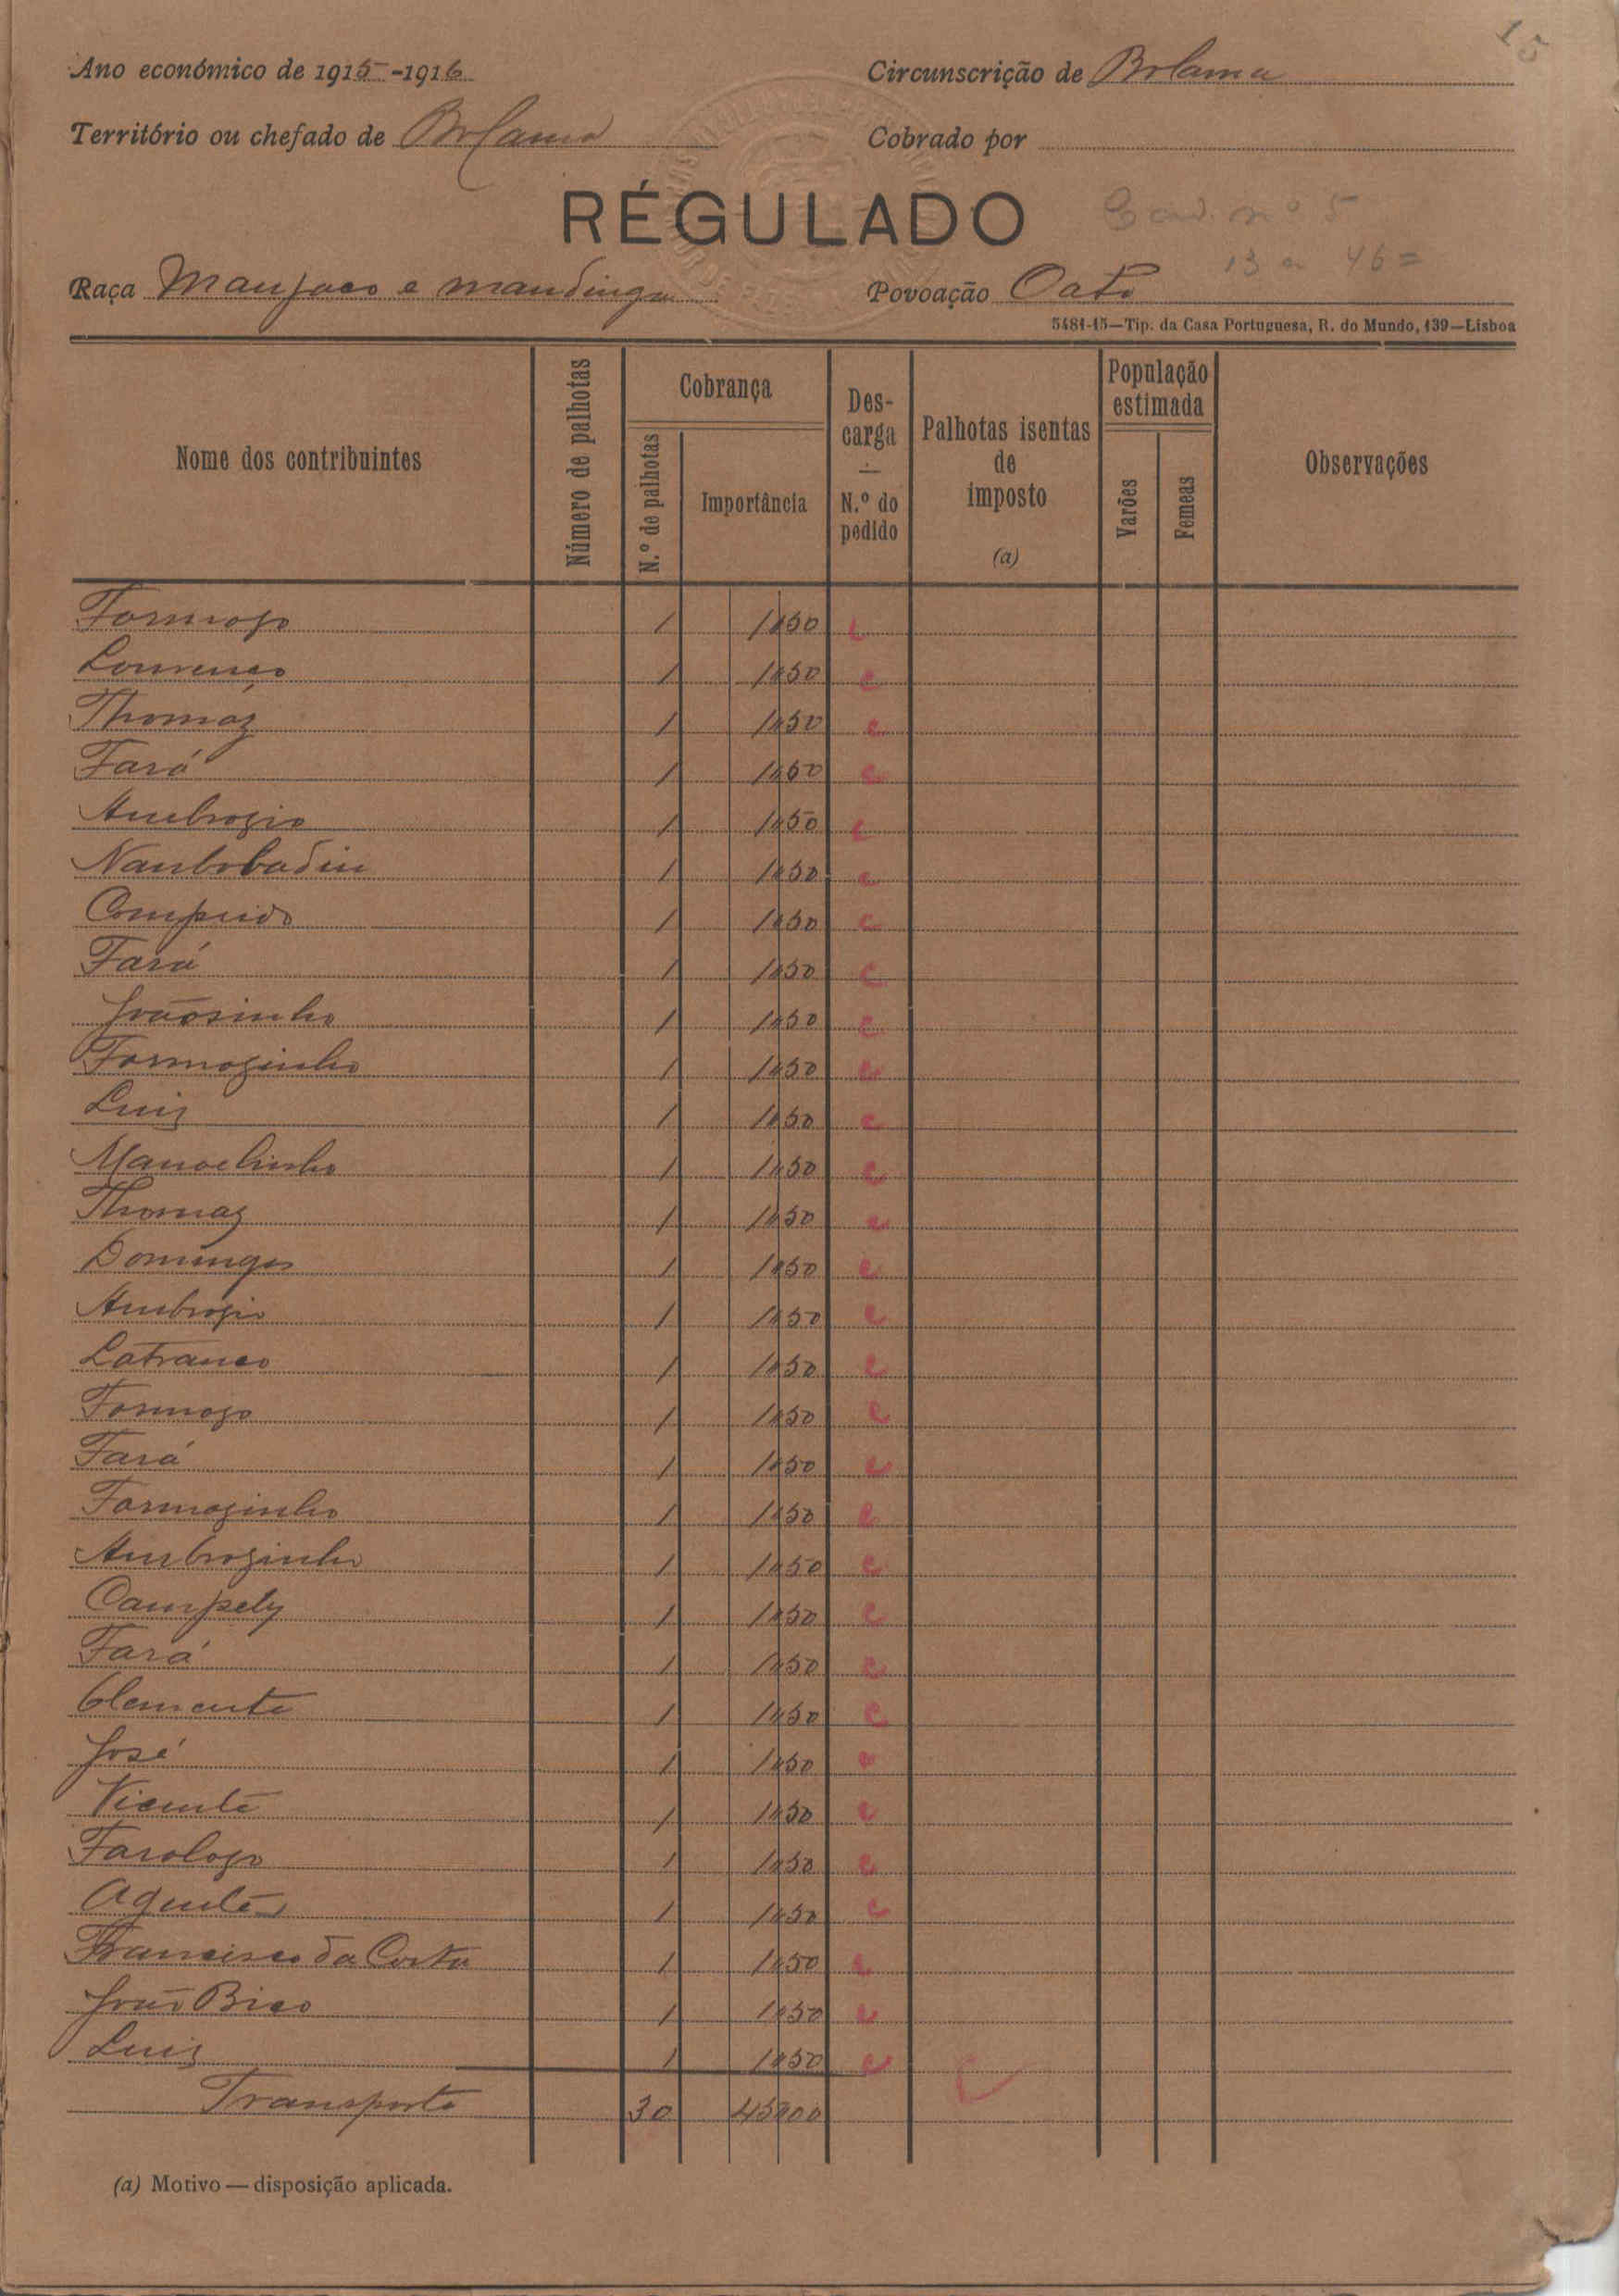 15
Ano económico de 1915-1916 Circunscrição de Bolama
Território ou chefado de Bolama Cobrado por
RÉGULADO Cad. nº 5
13 a 46=
Raça Manjaco e mandinga Povoação Oato
5481-15—Tip. da Casa Portuguesa, R. do Mundo, 139—Lisboa
Nome dos contribuintes Número de palhotas Cobrança N.º de palhotas Importância Descarga — N.º do pedido Palhotas isentas de imposto (a) População estimada Varões Femeas Observações
Formoso 1 1$50 c
Lourenço 1 1$50 c
Thomaz 1 1$50 c
Fará 1 1$50 c
Ambrozio 1 1$50 c
Nanbobadin 1 1$50 c
Comprido 1 1$50 c
Fará 1 1$50 c
Joãosinho 1 1$50 c
Formozinho 1 1$50 c
Luiz 1 1$50 c
Manoelinho 1 1$50 c
Thomaz 1 1$50 c
Domingos 1 1$50 c
Ambrozio 1 1$50 c
Latranco 1 1$50 c
Formozo 1 1$50 c
Fará 1 1$50 c
Formozinho 1 1$50 c
Ambrozinho 1 1$50 c
Campely 1 1$50 c
Fará 1 1$50 c
Clemente 1 1$50 c
José 1 1$50 c
Vicente 1 1$50 c
Farologo 1 1$50 c
1 1$50 c
Francisco da Costa 1 1$50 c
João Bico 1 1$50 c
Luiz 1 1$50 c
Transporte 30 45$00
(a) Motivo — disposição aplicada.